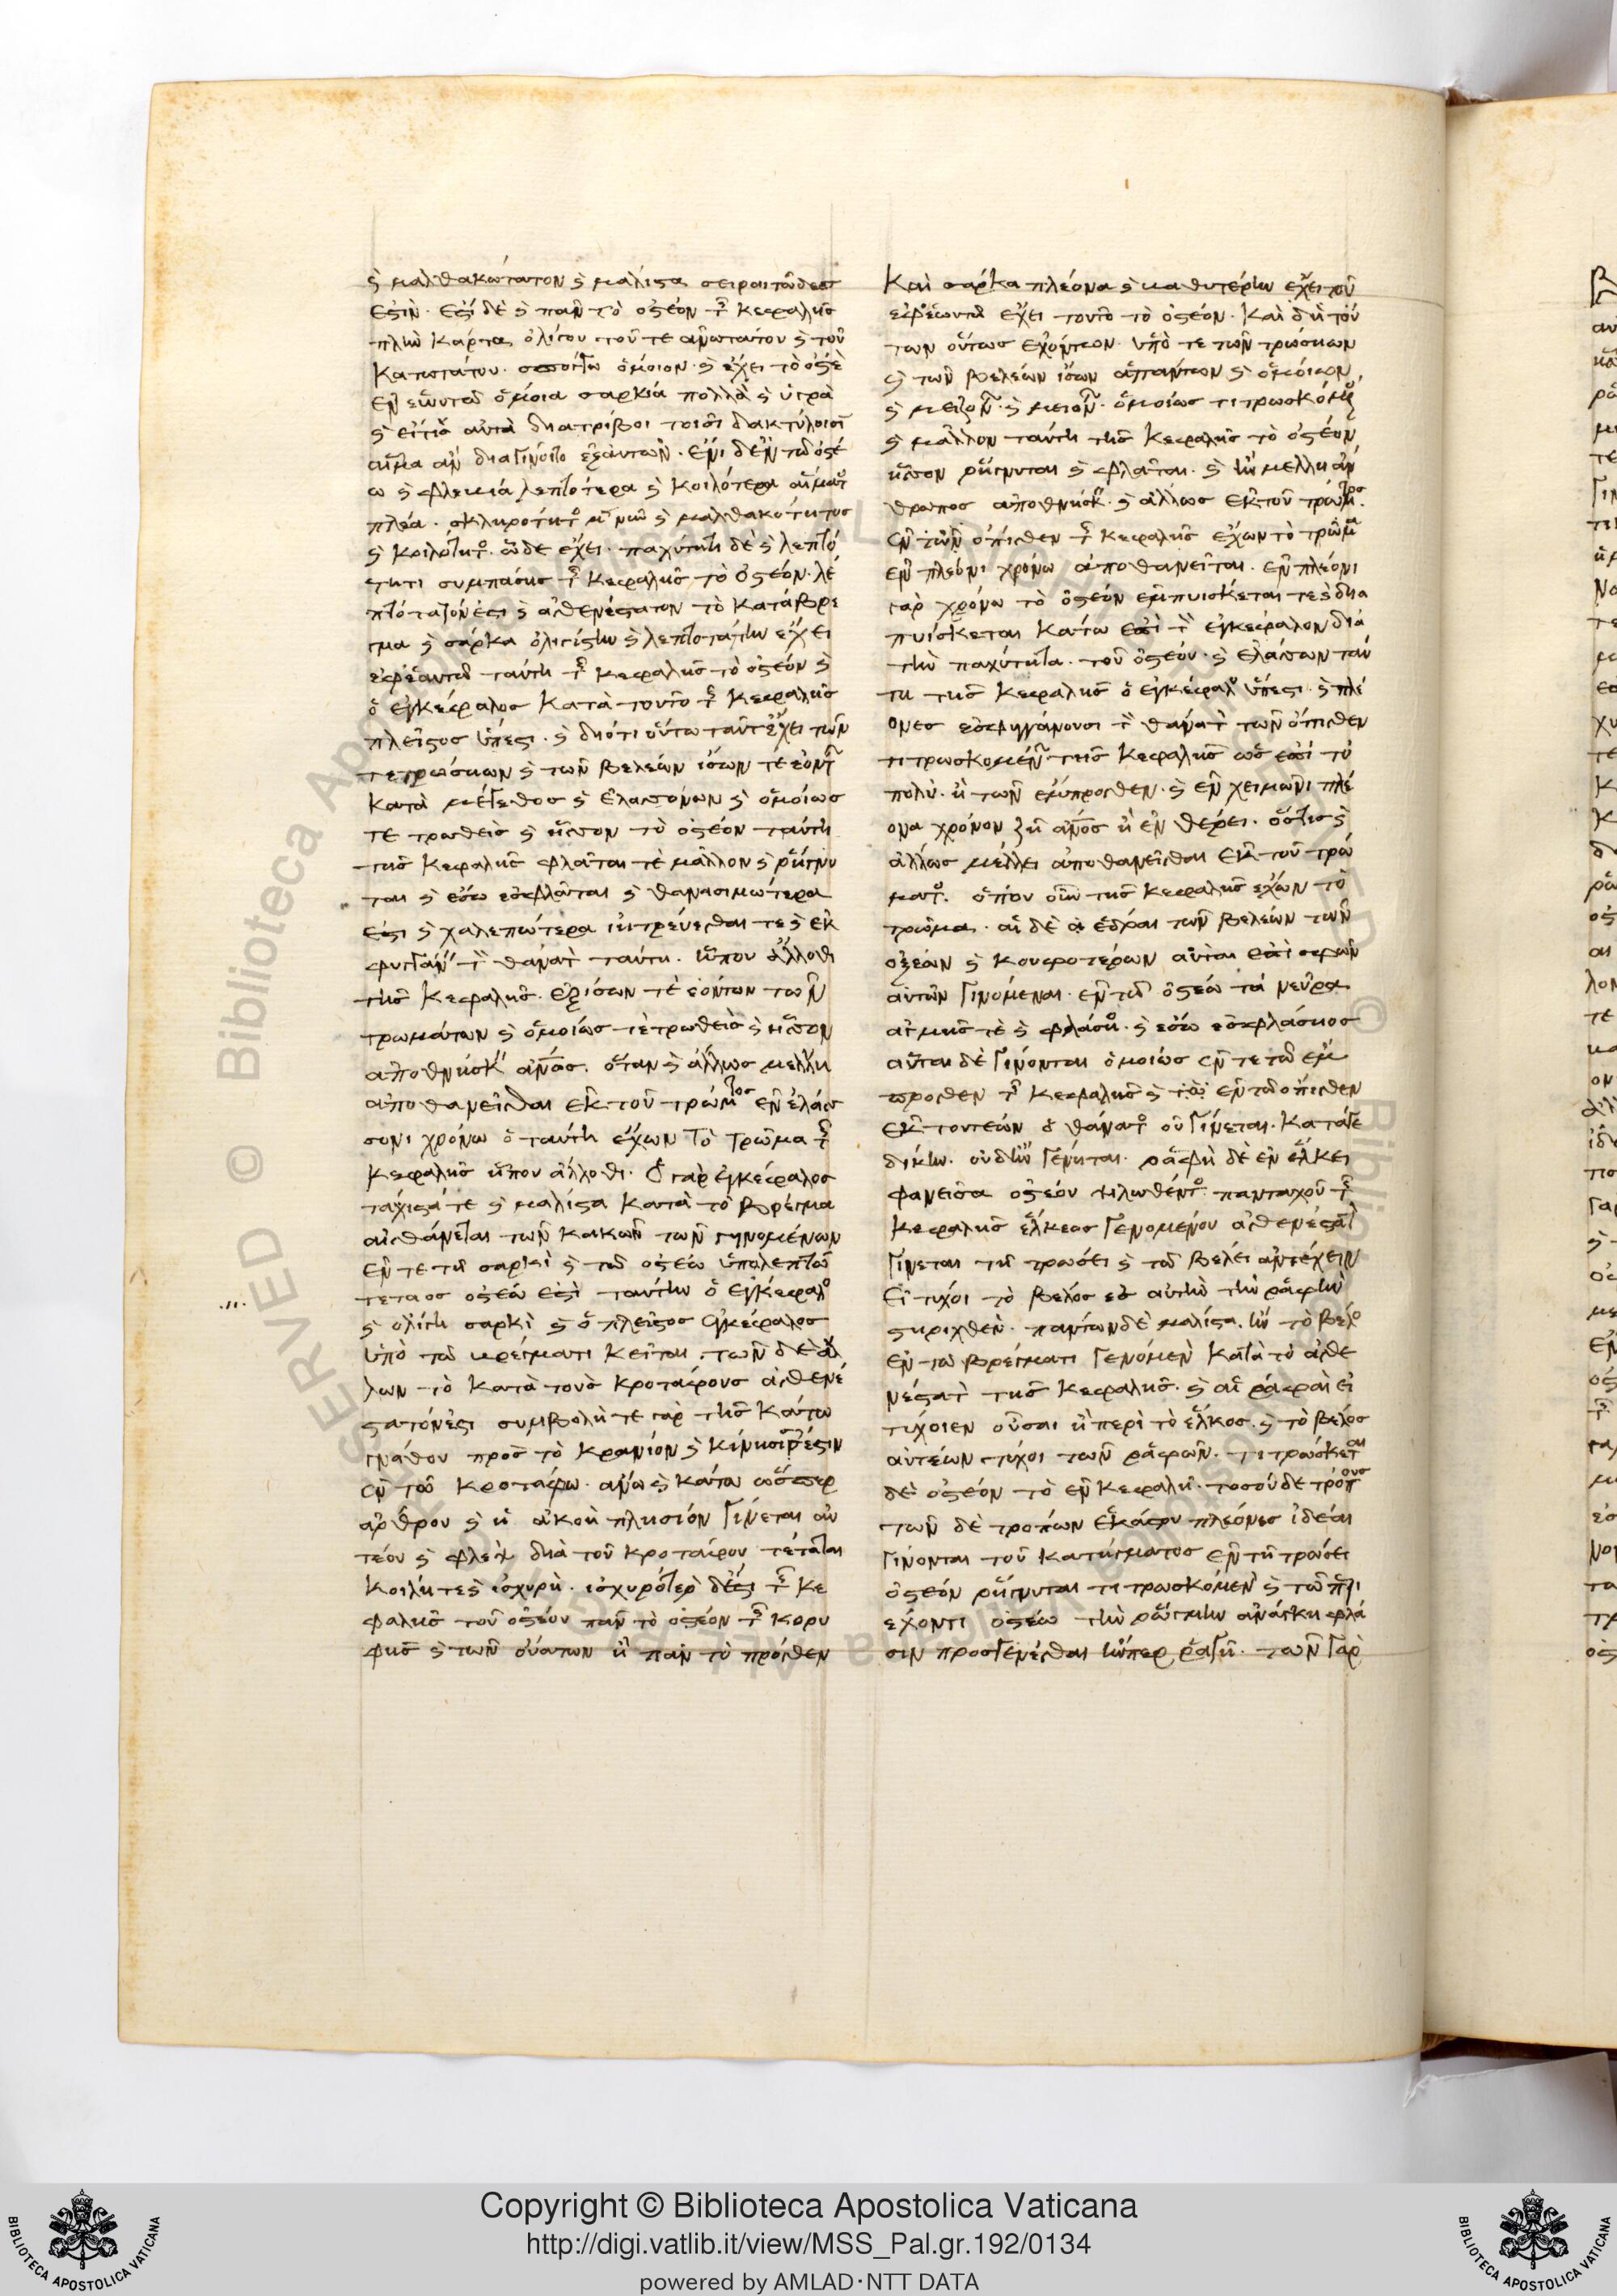 καὶ μαλθακώτατον καὶ μάλιστα σηραγγῶδες
ἐστὶν. ἐστὶ δὲ καὶ πᾶν τὸ ὀστέον τῆς κεφαλῆς
πλὴν κάρτα ὀλίγου τοῦ τε ἀνωτάτου καὶ τοῦ
κατωτάτου. σπόγγω ὅμοιον. καὶ ἔχει τὸ ὀστέ
ἐν ἑωυτῶ ὅμοια σαρκία πολλὰ καὶ ὑγρὰ
καὶ εἴ τις αὐτὰ διατρίβοι τοῖσι δακτύλοισι
αἷμα ἂν διαγίνοιτο ἐξ αὐτῶν. ἔνι δ' ἐν τῶ ὀστέ
ω καὶ φλεβία λεπτότερα καὶ κοιλότερα αἵματος
πλέα. σκληρότητος μὲν νῦν καὶ μαλθακότητος
καὶ κοιλότητος ὧδε ἔχει. παχύτητι δὲ καὶ λεπτό
τητι συμπάσης τῆς κεφαλῆς τὸ ὀστέον. λε
πτότατόν ἐστι καὶ ἀσθενέστατον τὸ κατὰ βρέ
γμα καὶ σάρκα ὀλιγίστην καὶ λεπτοτάτην ἔχει
ἐφ' ἑαυτῶ ταύτη τῆς κεφαλῆς τὸ ὀστέον καὶ
ὁ ἐγκέφαλος κατὰ τοῦτο τῆς κεφαλῆς
πλεῖστος ὕπεστι. καὶ διότι οὕτω ταῦτ' ἔχει τῶν
τε τρωσίων καὶ τῶν βελέων ἴσων τε ἐόντων
κατὰ μέγεθος καὶ ἐλασσόνων καὶ ὁμοίως
τε τρωθεὶς καὶ ἧσσον τὸ ὀστέον ταύτη
τῆς κεφαλῆς φλᾶται τὲ μᾶλλον καὶ ῥήγνυ
ται καὶ ἔσω ἐσφλᾶται καὶ θανασιμώτερα
ἐστι καὶ χαλεπώτερα ἰητρεύεσθαι τε καὶ ἐκ
φυγγάνειν τὸν θάνατον ταύτη. ἤπου ἄλλοθι
τῆς κεφαλῆς. ἐξ ἴσων τὲ ἐόντων τῶν
τρωμάτων καὶ ὁμοίως τὲ τρωθεὶς καὶ ἧσσον
ἀποθνήσκει ἄνθρωπος. ὅταν καὶ ἄλλως μέλλη
ἀποθανεῖσθαι ἐκ τοῦ τρώματος ἐν ἐλάσ
σονι χρόνω ὁ ταύτη ἔχων τὸ τρῶμα τῆς
κεφαλῆς ἤπου ἄλλοθι. ὁ γὰρ ἐγκέφαλος
τάχιστά τε καὶ μάλιστα κατὰ τὸ βρέγμα
αἰσθάνεται τῶν κακῶν τῶν γινομένων
ἔν τε τῆ σαρκὶ καὶ τῶ ὀστέω ὑπὸ λεπτο
τάτω ὀστέω ἐστὶ ταύτη ὁ ἐγκέφαλος
καὶ ὀλίγη σαρκὶ καὶ ὁ πλεῖστος ἐγκέφαλος
ὑπὸ τῶ βρέγματι κεῖται. τῶν δὲ ἄλ
λων τὸ κατὰ τοὺς κροτάφους ἀσθενέ
στατόν ἐστι συμβολή τε γὰρ τῆς κάτω
γνάθου πρὸς τὸ κρανίον καὶ κίνησις ἔστιν
ἐν τῶ κροτάφω ἄνω καὶ κάτω ὥσπερ
ἄρθρου καὶ ἡ ἀκοὴ πλησίον γίνεται αὐ
τέου καὶ φλὲψ διὰ τοῦ κροτάφου τέταται
κοίλη τε καὶ ἰσχυρή. ἰσχυρότερον δ' ἐστὶ τῆς κε
φαλῆς τοῦ ὀστέου πᾶν τὸ ὀστέον τῆς κορυ
φῆς καὶ τῶν οὐάτων ἢ πᾶν τὸ πρόσθεν
καὶ σάρκα πλέονα καὶ βαθυτέρην ἔχει τοῦ
ἐφ' ἑωυτῶ ἔχει τοῦτο τὸ ὀστέον. καὶ δὴ τού
των οὕτως ἐχόντων. ὑπό τε τῶν τρώσιων
καὶ τῶν βελέων ἴσων ἁπάντων καὶ ὁμοίων
καὶ μειζόνων. καὶ μειόνων. ὁμοίως τιτρωσκόμενος
καὶ μᾶλλον ταύτη τῆς κεφαλῆς τὸ ὀστέον
ἧσσον ῥήγνυται καὶ φλᾶται. καὶ ἢν μέλλη ἄν
θρωπος ἀποθνήσκειν. καὶ ἄλλως ἐκ τοῦ τρώματος.
ἐν τῶν ὄπισθεν τῆς κεφαλῆς ἔχων τὸ τρῶμα
ἐν πλέονι χρόνω ἀποθανεῖται. ἐν πλέονι
γὰρ χρόνω τὸ ὀστέον ἐμπυίσκεται τε καὶ δια
πυίσκεται κάτω ἐπὶ τὸν ἐγκέφαλον διὰ
τὴν παχύτητα τοῦ ὀστέου. καὶ ἐλάσσων ταύ
τη τῆς κεφαλῆς ὁ ἐγκέφαλος ὕπεστι. καὶ πλέ
ονες ἐκφυγγάνουσι τὸν θάνατον τῶν ὄπισθεν
τιτρωσκομένων τῆς κεφαλῆς ὡς ἐπὶ τὸ
πολὺ. ἢ τῶν ἔμπροσθεν. καὶ ἐν χειμῶνι πλέ
ονα χρόνον ζῆ ἄνθρωπος ἢ ἐν θέρει. ὅστις καὶ
ἄλλως μέλλει ἀποθανεῖσθαι ἐκ τοῦ τρώ
ματος. ὅπου οὖν τῆς κεφαλῆς ἔχων τὸ
τρῶμα. αἱ δὲ ἕδραι τῶν βελέων τῶν
ὀξέων καὶ κουφοτέρων αὗται ἐπὶ σφῶν
αὐτῶν γινόμεναι. ἐν τῶ ὀστέω τὰ νεῦρα
ῥωγμῆς τὲ καὶ φλάσιος. καὶ ἔσω ἐσφλάσιος
αὗται δὲ γίνονται ὁμοίως ἔν τε τῶ ἔμ
προσθεν τῆς κεφαλῆς καὶ ἐν τῶ ὄπισθεν
ἐκ τουτέων ὁ θάνατος οὐ γίνεται. κατά γε
δίκην. οὐδ' ἢν γένηται. ῥαφὴ δὲ ἐν ἕλκει
φανεῖσα ὀστέου ψιλωθέντος. πανταχοῦ τῆς
κεφαλῆς ἕλκεος γενομένου ἀσθενέστατον
γίνεται τῆ τρώσει καὶ τῶ βέλει ἀντέχειν
εἰ τύχοι τὸ βέλος ἐς αὐτὴν τὴν ῥαφὴν
στηριχθὲν. πάντων δὲ μάλιστα. ἢν τὸ βέλος
ἐν τῶ βρέγματι γενόμενον κατὰ τὸ ἀσθε
νέστατον τῆς κεφαλῆς. καὶ αἱ ῥαφαὶ εἰ
τύχοιεν οὖσαι ἢ περὶ τὸ ἕλκος. καὶ τὸ βέλος
αὐτέων τύχοι τῶν ῥαφῶν. τιτρώσκεται
δὲ ὀστέον τὸ ἐν κεφαλῆ. τοσούσδε τρόπους
τῶν δὲ τρόπων ἑκάστου πλέονες ἰδέαι
γίνονται τοῦ κατήγματος ἐν τῆ τρώσει
ὀστέον ῥήγνυται τιτρωσκόμενον καὶ τῶ περι
έχοντι ὀστέω τὴν ῥωγμὴν ἀνάγκη φλά
σιν προσγενέσθαι ἤνπερ ῥαγῆ. τῶν γὰρ
Copyright © Biblioteca Apostolica Vaticana
http://digi.vatlib.it/view/MSS_Pal.gr.192/0134
powered by AMLAD·NTT DATA